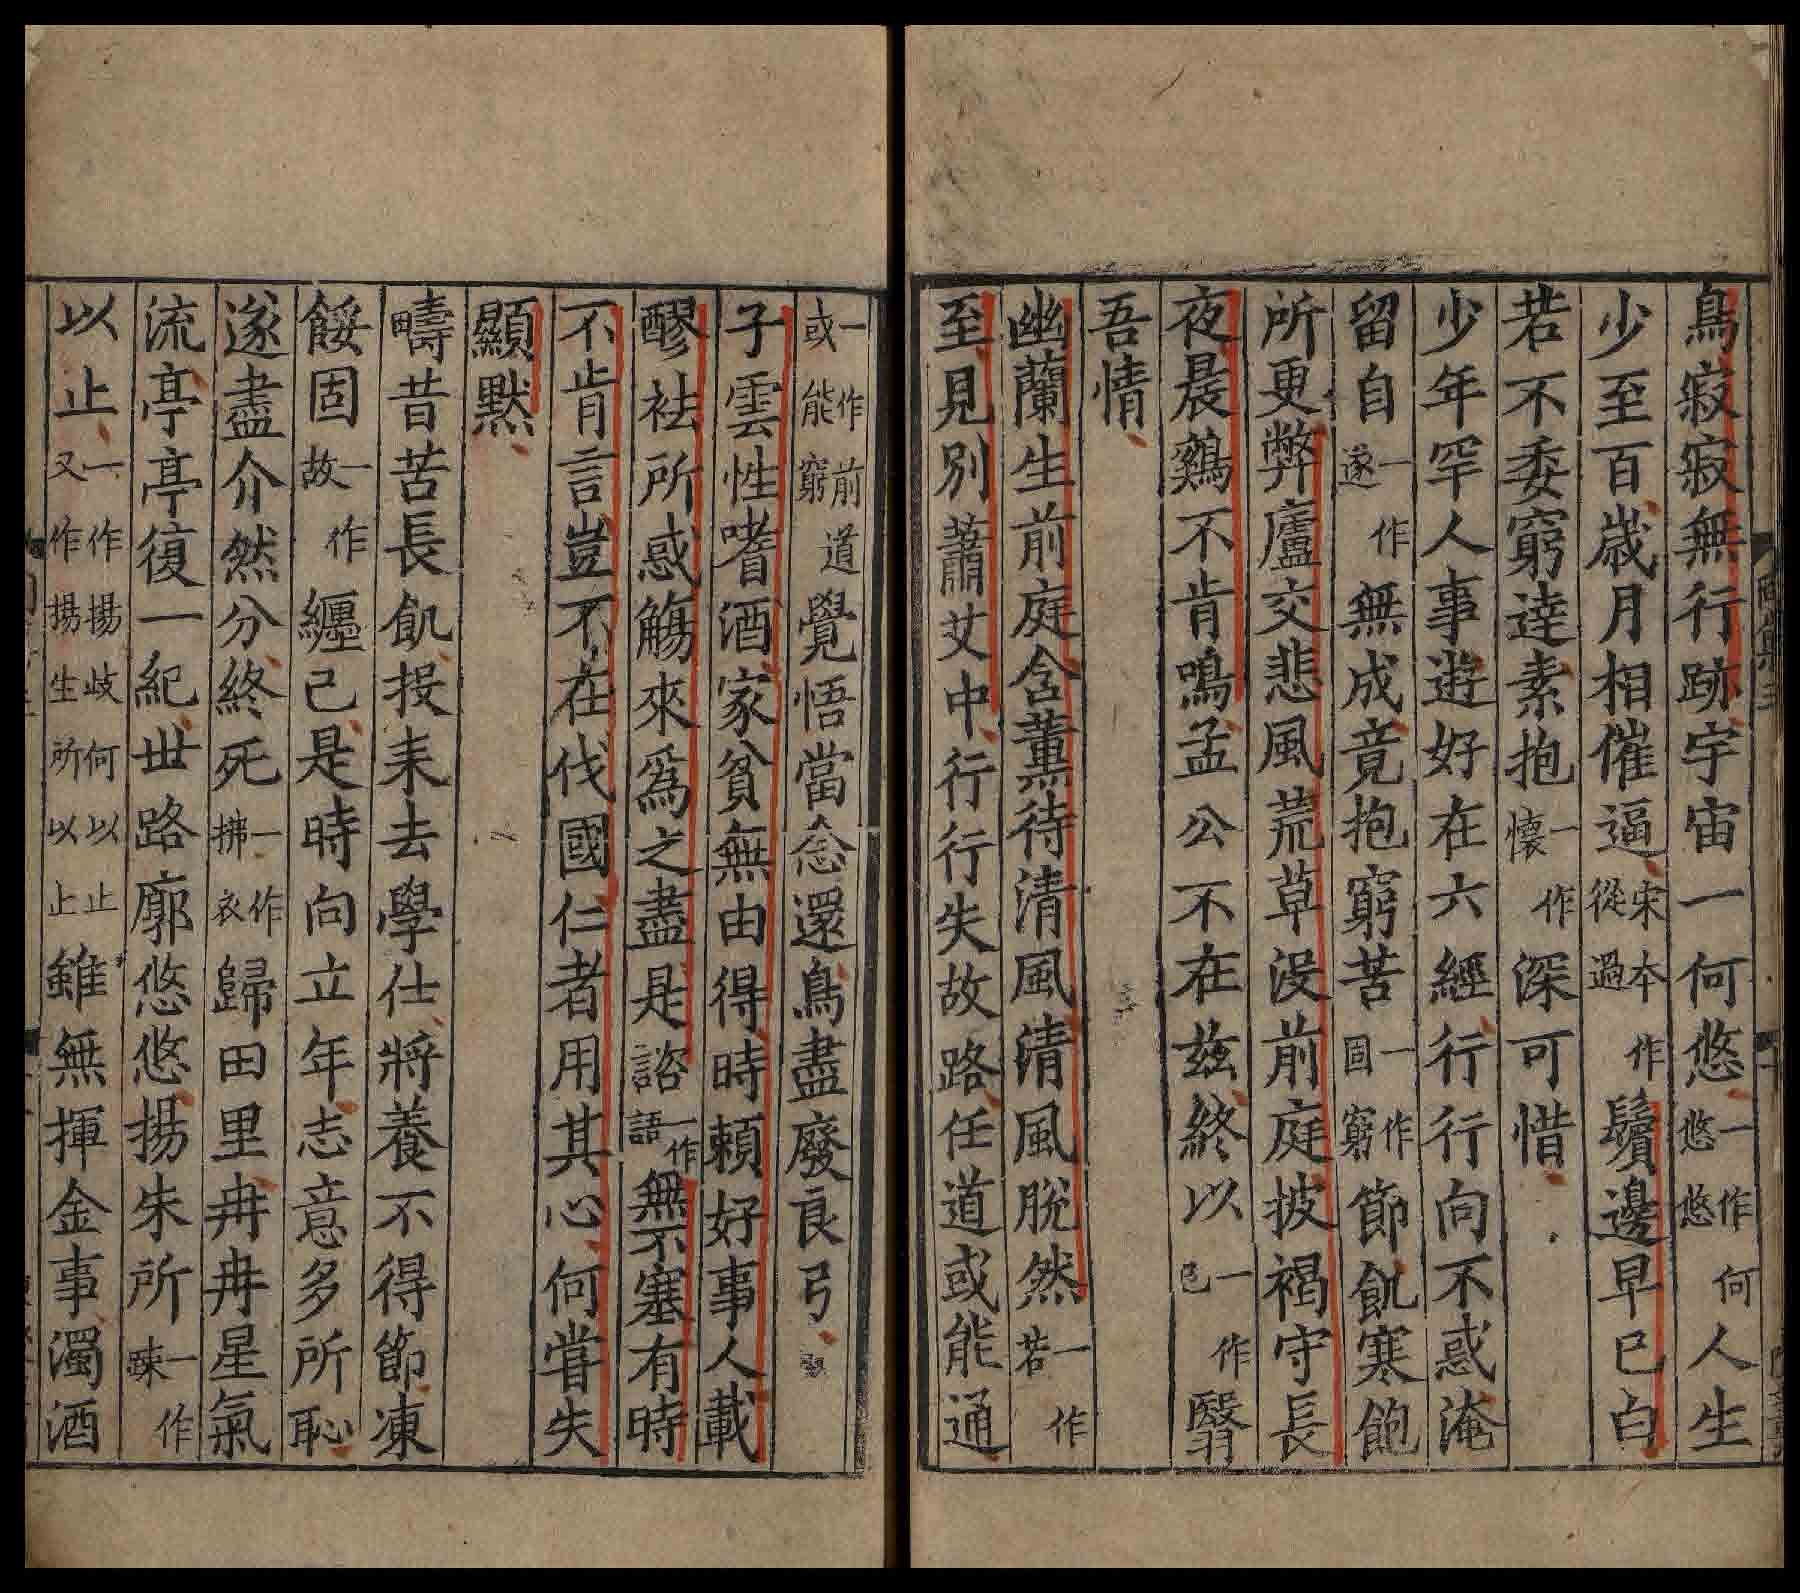 鳥寂寂無行跡宇宙一何悠一作悠悠何人生
少至百歲月相催逼宋本作從過鬢邊早已白
若不委窮達素抱一作懷深可惜
少年罕人事遊好在六經行行向不惑淹
留自一作遂無成竟抱窮苦一作固窮節飢寒飽
所更弊廬交悲風荒草沒前庭披褐守長
夜晨鷄不肯鳴孟公不在茲終以一作已翳
吾情
幽蘭生前庭含薰待清風清風脫然一作若
至見別蕭艾中行行失故路任道或能通
一作前道或能窮覺悟當念還鳥盡廢良弓
子雲性嗜酒家貧無由得時賴好事人載
醪袪所惑觴來為之盡是諮一作語無不塞有時
不肯言豈不在伐國仁者用其心何嘗失
顯默
疇昔苦長飢投耒去學仕將養不得節凍
餒固一作故纏己是時向立年志意多所恥
遂盡介然分終死一作拂衣歸田里冉冉星氣
流亭亭復一紀世路廓悠悠揚朱所一作踈
以止一作揚歧何以止又作揚生所以止雖無揮金事濁酒